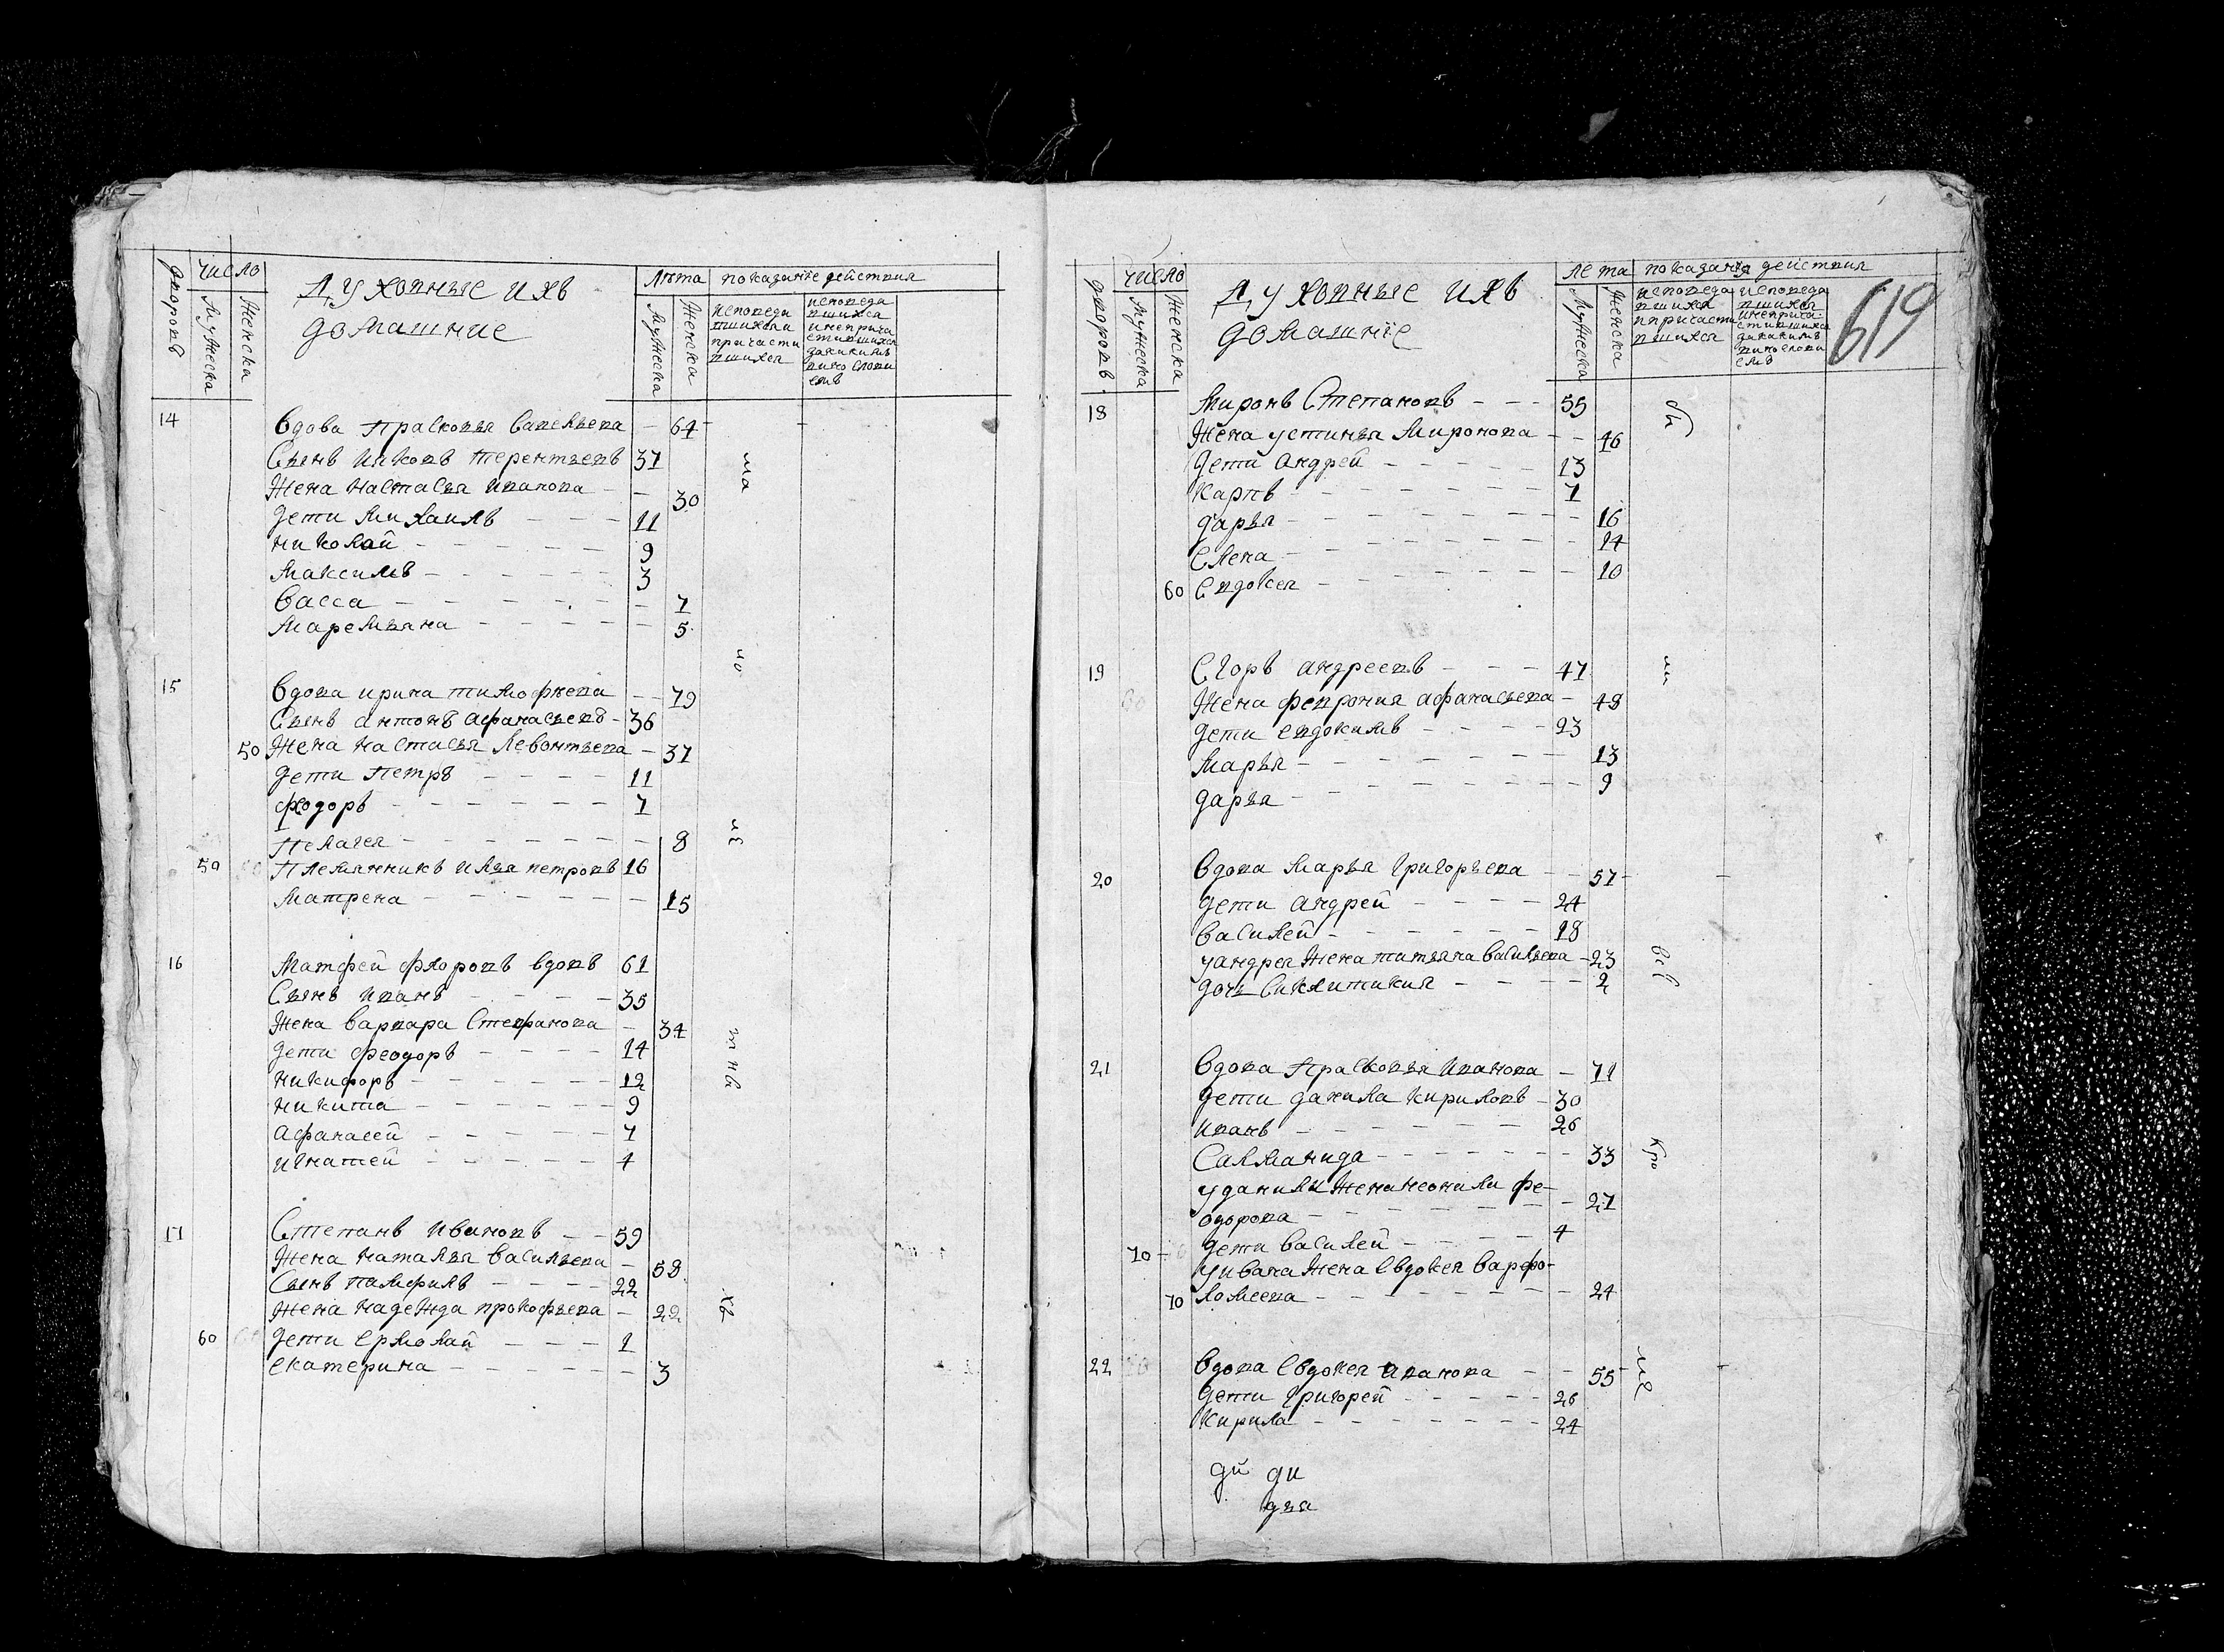 дворовъ число Духовные ихъ Лѣта показание действия
Мужеска Женска домашние Мужеска Женска
исповеда
вшихся и
причасти
вшихся
исповеда
вшихся
инеприча
стившихся
закакимъ
вино слови
емъ
14 Вдова Прасковья Савельева — 64
Сынъ Иаковъ Терентьевъ 37
Жена Настасья Иванова — 30
Дети Михаилъ — 11
Николай — 9
Максимъ — 3
Васса — 7
Маремьяна — 5
15 Вдова Ирина Тимофѣева — 79
Сынъ Антонъ Афанасьевъ — 36
50 Жена Настасья Левонтьева — 37
Дети Петръ — 11
Феодоръ — 7
Пелагея — 8
50 Племянникъ Илья Петровъ 16
Матрена — 15
16 Матфей Флоровъ вдовъ 61
Сынъ Иванъ — 35
Жена Варвара Стефанова — 34
Дети Феодоръ — 14
Никифоръ — 12
Никита — 9
Афанасей — 7
Игнатей — 4
17 Степанъ Ивановъ — 59
Жена Наталья Васильева — 58
Сынъ Памфилъ — 22
Жена Надежда Прокофьева — 22
60 Дети Ермолай — 1
Екатерина — 3
ша
но
из
тнъ
хъ
619
дворовъ число Духовные ихъ Лета показания действия
Мужеска Женска домашніе Мужеска Женска
исповеда
вшихся
ипричасти
вшихся
исповеда
вшихся
инеприча
стившихся
закакимъ
вино слови
емъ
18 Миронъ Степановъ — 55
Жена Устинья Миронова — 46
Дети Андрей — 13
Карпъ — 7
Дарья — 16
Елена — 14
60 Евдокея — 10
19 Егоръ Андреевъ — 47
Жена Феврония Афанасьева — 48
Дети Евдокимъ — 23
Марья — 13
Дарья — 9
20 Вдова Марья Григорьева — 57
Дети Андрей — 24
Василей — 18
уандрея Жена татьяна Васильева — 23
Дочь Сиклитикия — 2
21 Вдова Прасковья Иванова — 71
Дети Данила Кириловъ — 30
Иванъ — 26
Саламанида — 33
уданилы Жена неонила Фе-
одорова — 27
70 Дети Василей — 4
уивана Жена Евдокея Варфо-
70 ломеева — 24
22 Вдова Евдокея Иванова — 55
Дети Григорей — 26
Кирила — 24
всѣ
кро
ме
ди ди
дья